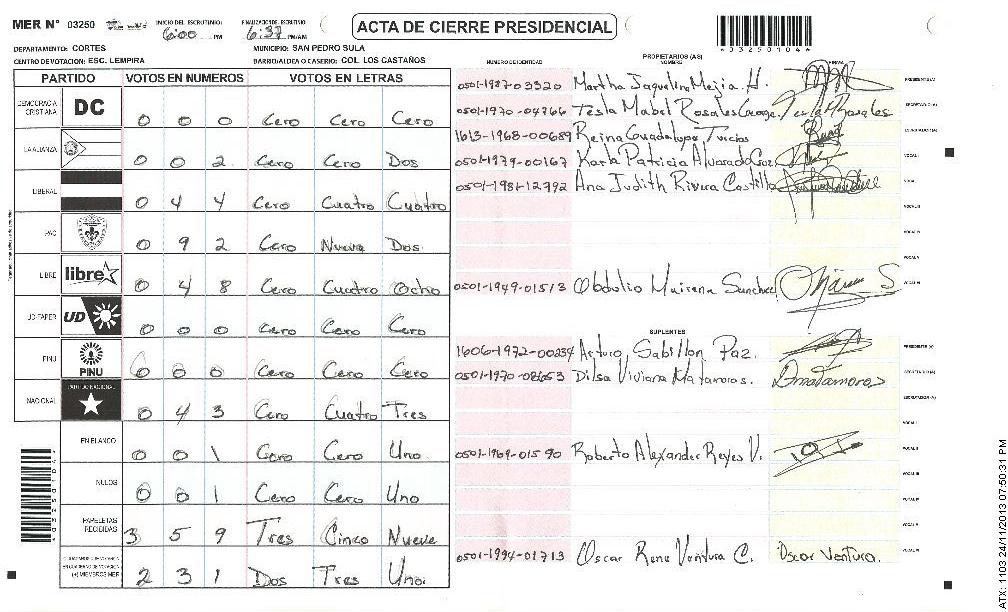 MER N° 03250 INICIO DEL ESCRUTINIO: 6:00 PM FINALIZACION DEL ESCRUTINIO 6:37 PM/AM
ACTA DE CIERRE PRESIDENCIAL
DEPARTAMENTO: CORTES MUNICIPIO: SAN PEDRO SULA
CENTRO DE VOTACION: ESC. LEMPIRA BARRIO/ALDEA O CASERIO: COL. LOS CASTAÑOS
PARTIDO VOTOS EN NUMEROS VOTOS EN LETRAS
DEMOCRACIA CRISTIANA DC 0 0 0 Cero Cero Cero
LA ALIANZA 0 0 2 Cero Cero Dos
LIBERAL 0 4 4 Cero Cuatro Cuatro
PAC 0 9 2 Cero Nueve Dos
LIBRE libre 0 4 8 Cero Cuatro Ocho
UD-FAPER UD 0 0 0 Cero Cero Cero
PINU PINU 0 0 0 Cero Cero Cero
NACIONAL PARTIDO NACIONAL 0 4 3 Cero Cuatro Tres
EN BLANCO 0 0 1 Cero Cero Uno
NULOS 0 0 1 Cero Cero Uno
PAPELETAS RECIBIDAS 3 5 9 Tres Cinco Nueve
(+) MIEMBROS MER 2 3 1 Dos Tres Uno.
*03250104*
PROPIETARIOS (AS)
NUMERO DE IDENTIDAD NOMBRE FIRMA
0501-1987-03320 Martha Jaqueline Mejia H. PRESIDENTE (A)
0501-1970-04766 Tesla Mabel Rosales George SECRETARIO (A)
1613-1968-00689 Reina Guadalupe Turcios ESCRUTADOR (A)
0501-1979-00167 Karla Patricia Alvarado VOCAL I
0501-1981-12792 Ana Judith Rivera Castillo VOCAL II
VOCAL III
VOCAL IV
VOCAL V
0501-1949-01513 Obdulio Mairena Sanchez VOCAL VI
SUPLENTES
1606-1972-00234 Arturo Sabillon Paz. PRESIDENTE (A)
0501-1970-08653 Dilsa Viviana Matamoros. Dmatamoros SECRETARIO (A)
ESCRUTADOR (A)
0501-1969-01590 Roberto Alexander Reyes V.
0501-1994-01713 Oscar Rene Ventura C. Oscar Ventura.
ATX: 1103 24/11/2013 07:50:31 PM